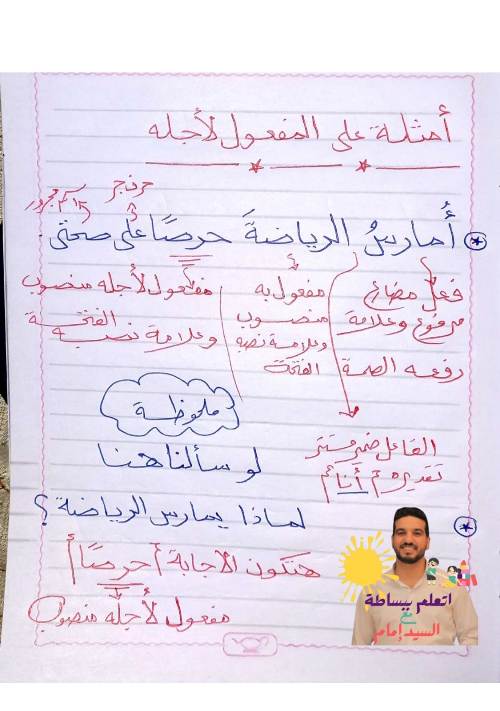 أمثلة على المفعول لأجله
حرف جر
اسم مجرور
أُمارسُ الرياضةَ حرصًا على صحتي.
فعل مضارع
مرفوع وعلامة
رفعه الضمة
مفعول به
منصوب
وعلامة نصبه
الفتحة
مفعول لأجله منصوب
وعلامة نصبه الفتحة
الفاعل ضمير مستتر
تقديره "أنا"
ملحوظة
لو سألنا هنا
لماذا يمارس الرياضة؟
هتكون الاجابة "حرصًا"
مفعول لأجله منصوب
اتعلم ببساطة
مع
السيد إمام